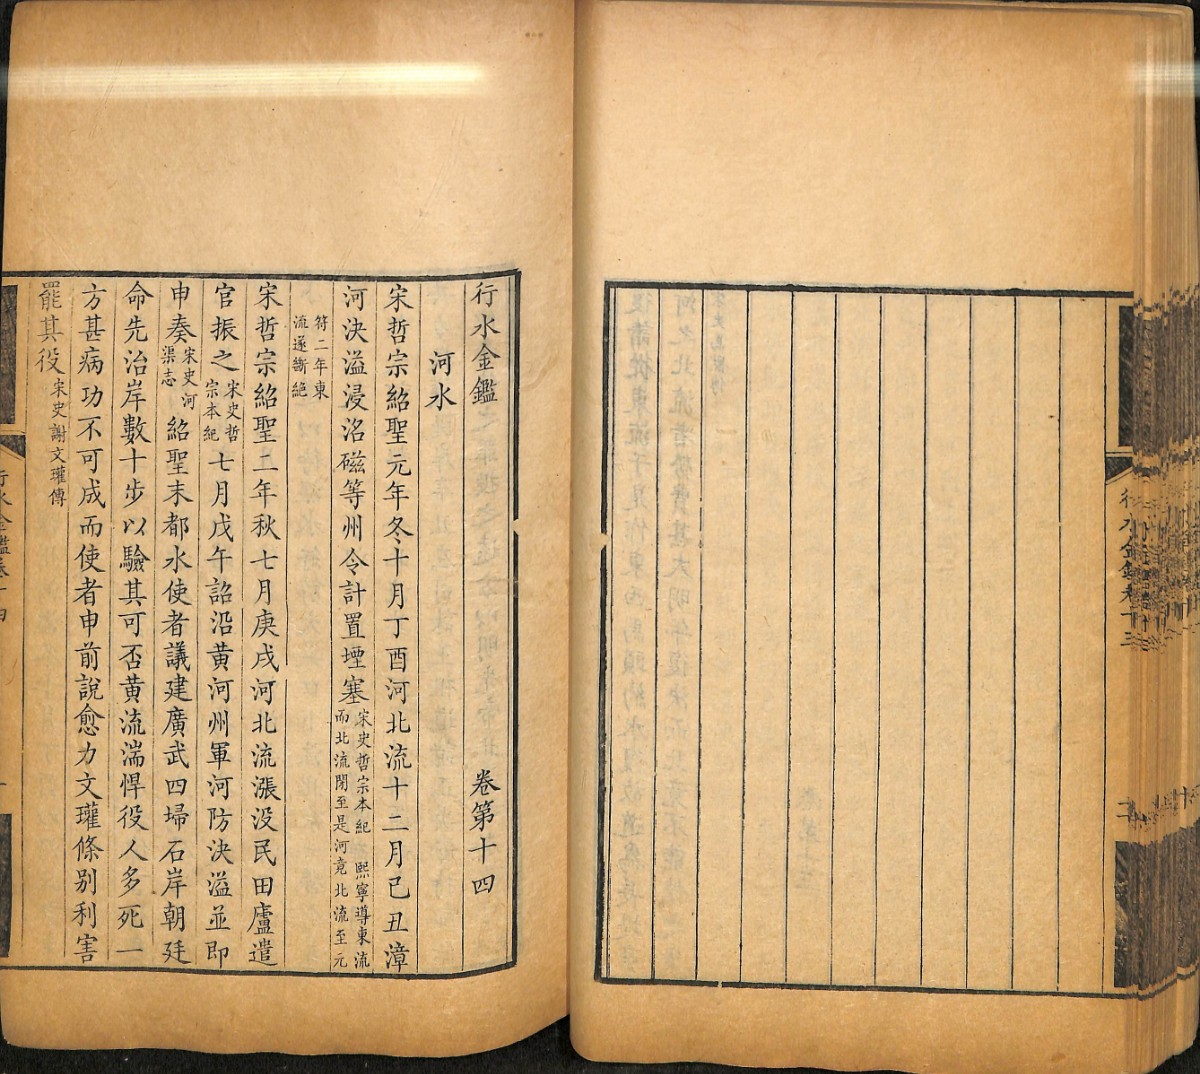 行水金鑑卷十三
行水金鑑 卷第十四
河水
宋哲宗紹聖元年冬十月丁酉河北流十二月己丑漳
河決溢浸洺磁等州令計置堙塞宋史哲宗本紀 熙寧導東流
而北流閉至是河竟北流至元
符二年東
流遂斷絕
宋哲宗紹聖二年秋七月庚戌河北流漲没民田廬遣
官振之宋史哲宗本紀七月戊午詔沿黃河州軍河防決溢並即
申奏宋史河渠志紹聖末都水使者議建廣武四埽石岸朝廷
命先治岸數十步以驗其可否黃流湍悍役人多死一
方甚病功不可成而使者申前說愈力文瓘條別利害
罷其役宋史謝文瓘傳
行水金鑑卷十四